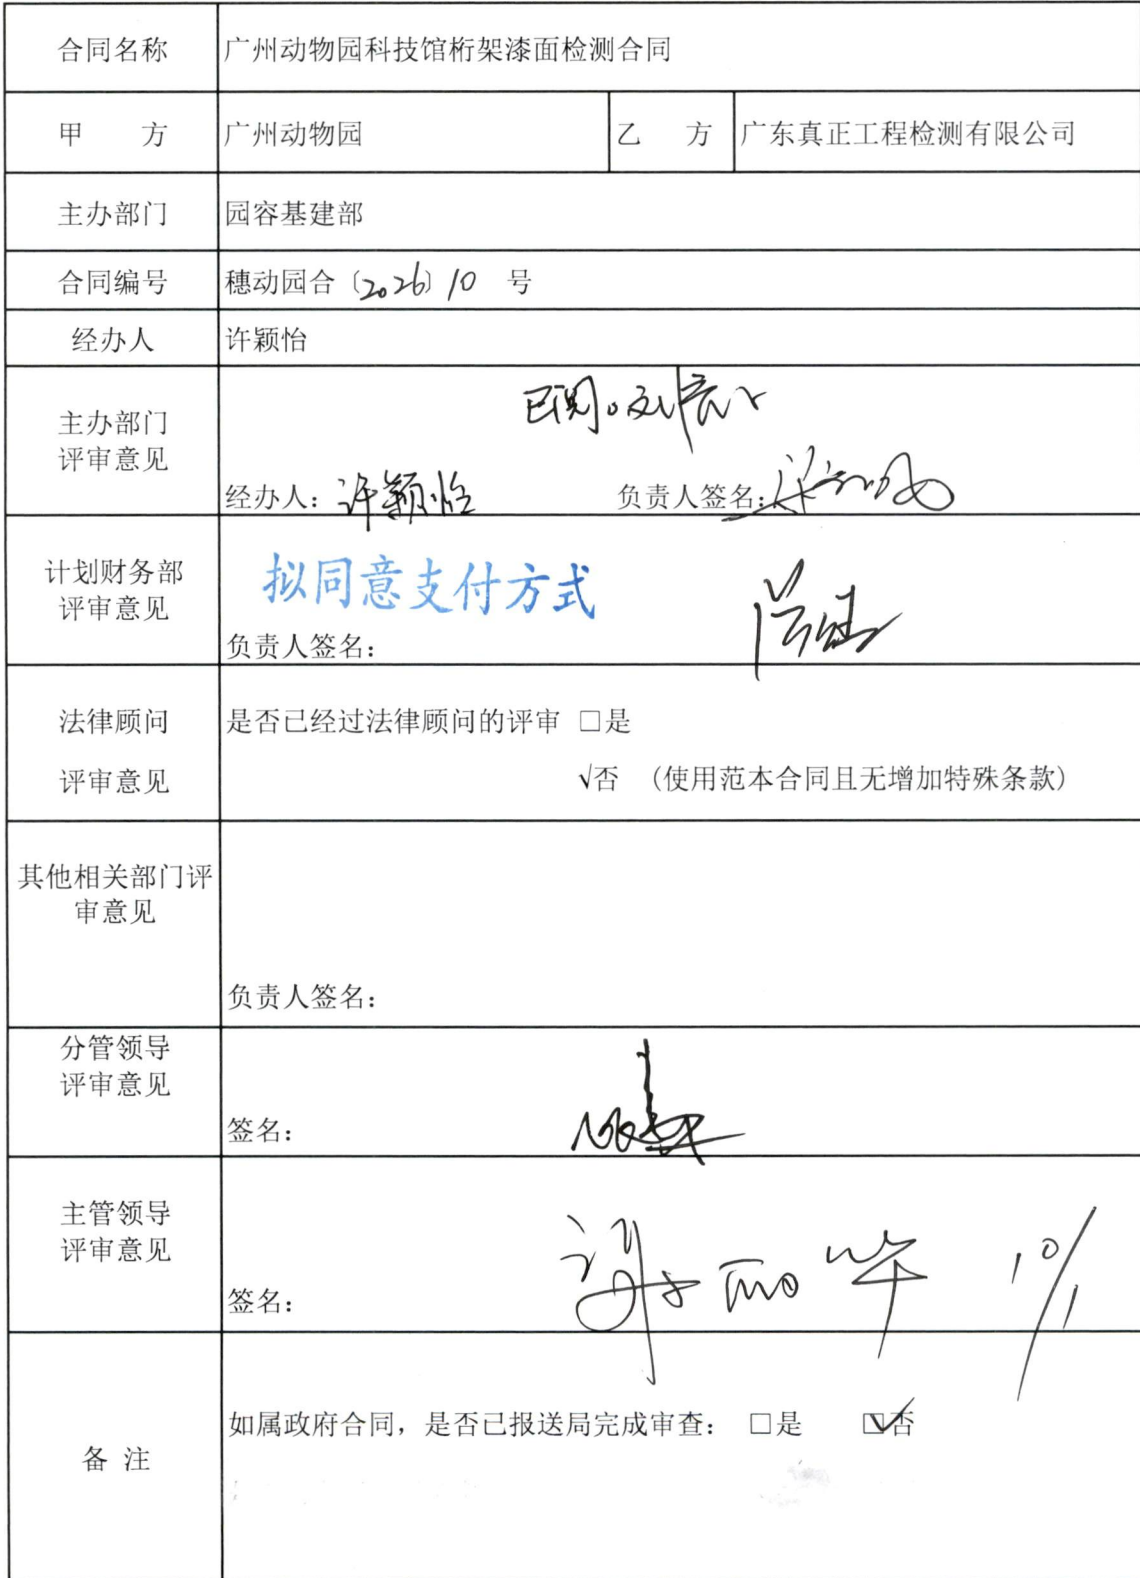 合同名称 广州动物园科技馆桁架漆面检测合同
甲 方 广州动物园 乙 方 广东真正工程检测有限公司
主办部门 园容基建部
合同编号 穗动园合〔2026〕10 号
经办人 许颖怡
主办部门
评审意见
已阅。
经办人：许颖怡 负责人签名：
计划财务部
评审意见
拟同意支付方式
负责人签名：
法律顾问
评审意见
是否已经过法律顾问的评审 □是
√否 （使用范本合同且无增加特殊条款）
其他相关部门评
审意见
负责人签名：
分管领导
评审意见
签名：
主管领导
评审意见
签名：
备 注
如属政府合同，是否已报送局完成审查： □是 ☑否